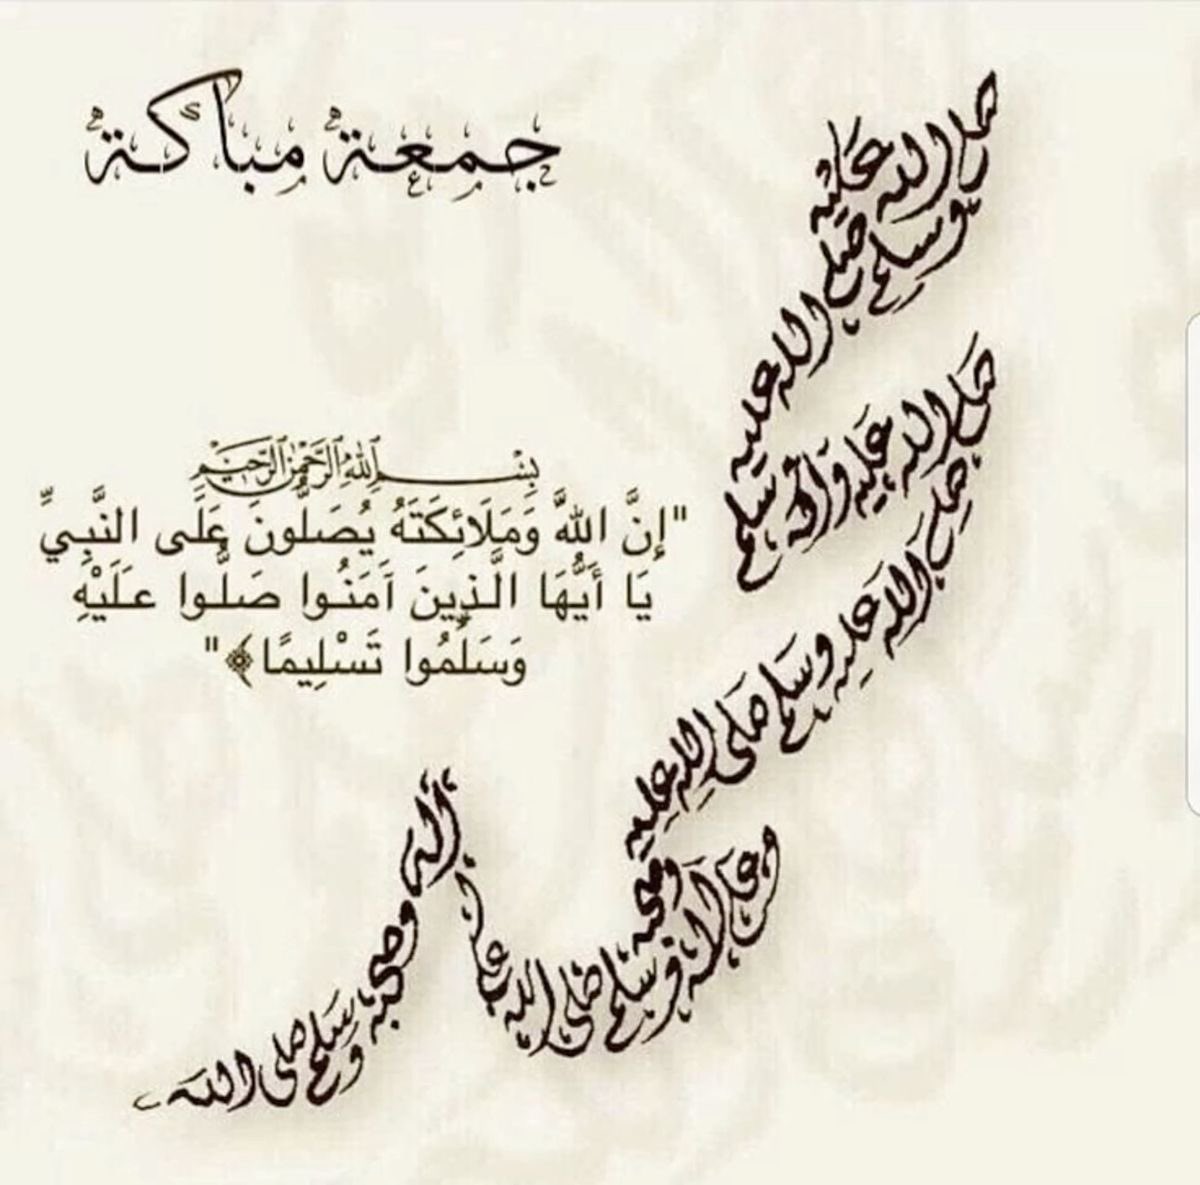 جمعة مباكة
بِسْمِ اللهِ الرَّحْمٰنِ الرَّحِيْمِ
"إِنَّ اللهَ وَمَلَائِكَتَهُ يُصَلُّونَ عَلَى النَّبِيِّ
يَا أَيُّهَا الَّذِينَ آمَنُوا صَلُّوا عَلَيْهِ
وَسَلِّمُوا تَسْلِيمًا﴾"
صلى الله عليه
وسلم صلى الله عليه
وسلم
صلى الله عليه وآله
صلى الله عليه وسلم صلى الله عليه
وصحبه
وعلى آله وسلم صلى الله عليه
آله وصحبه وسلم صلى الله